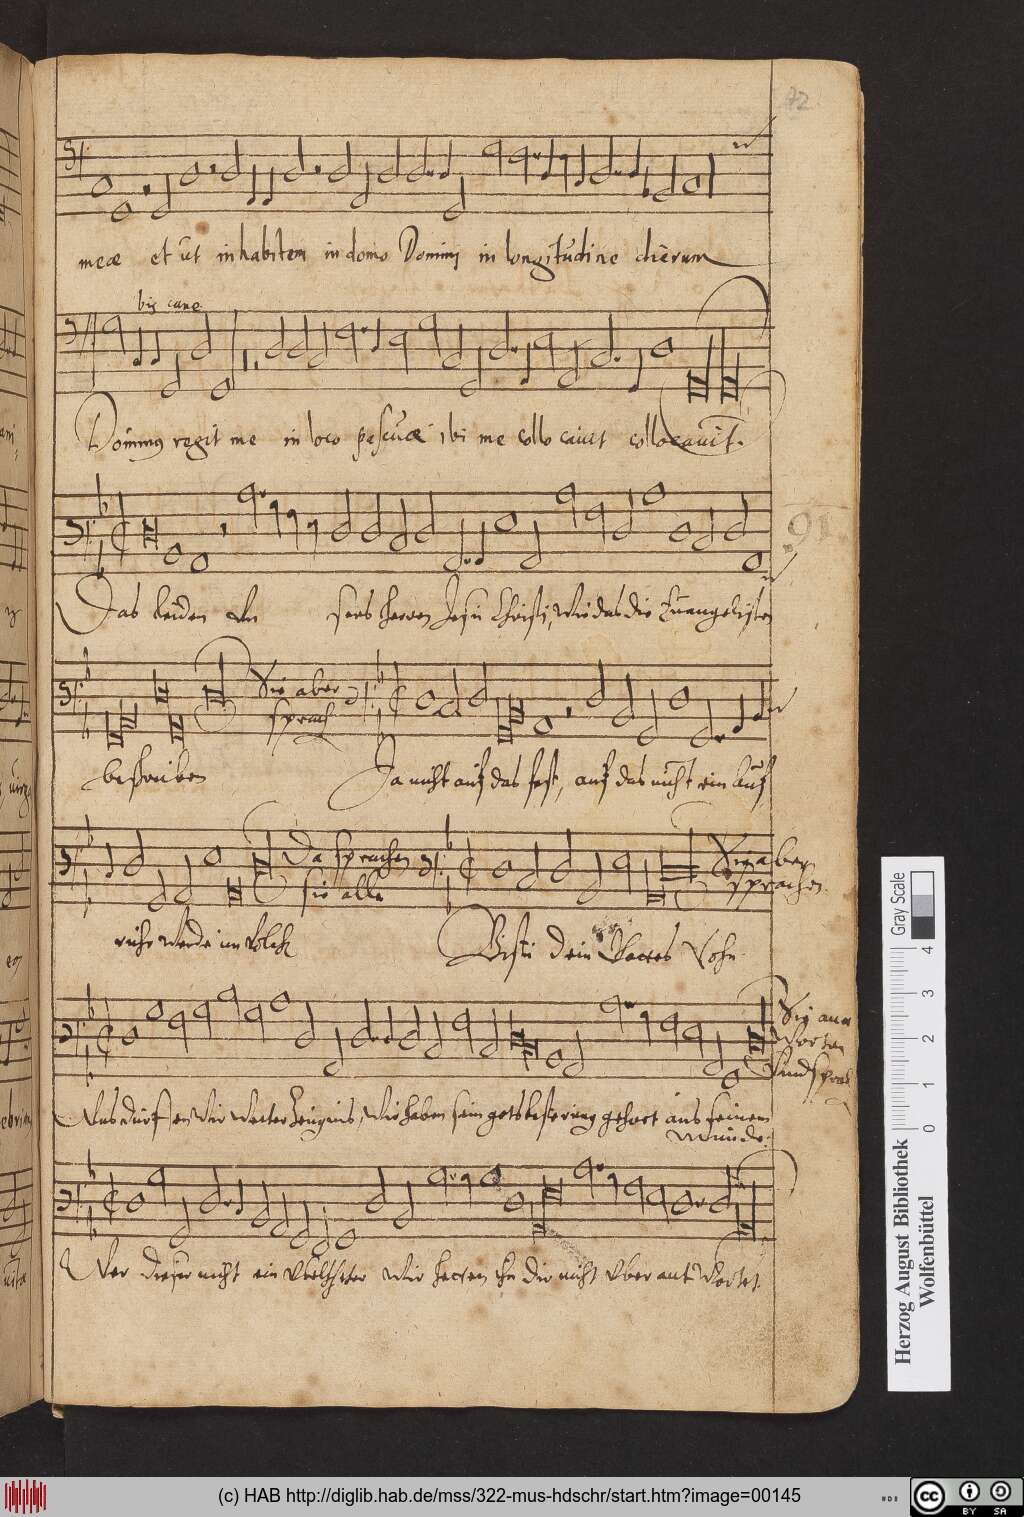 72
meæ et ut inhabitem in domo Domini in longitudine dierum
bis cane
Dominus regit me in loco pascuæ ibi me collo cauit collocauit.
91
Das leiden un sers herren Jesu Christi, wie das die Euangelisten
Sie aber
sprach
beschreiben
Ja nicht auff das fest, auff das nicht ein auff
Da sprachen
sie alle
Sie aber
sprachen
ruhr werde im Volck
Bistu dein Gottes Sohn
Sie ant
worten
Und sprach
Was dürffen wir weiter Zeugnis, Wir haben sein gotsleste rung gehort aus seinem
munde.
Wer dieser nicht ein Vbeltheter wir hetten ihn dir nicht vber ant Wortet.
Gray Scale
0 1 2 3 4
Herzog August Bibliothek
Wolfenbüttel
(c) HAB http://diglib.hab.de/mss/322-mus-hdschr/start.htm?image=00145
cc BY SA